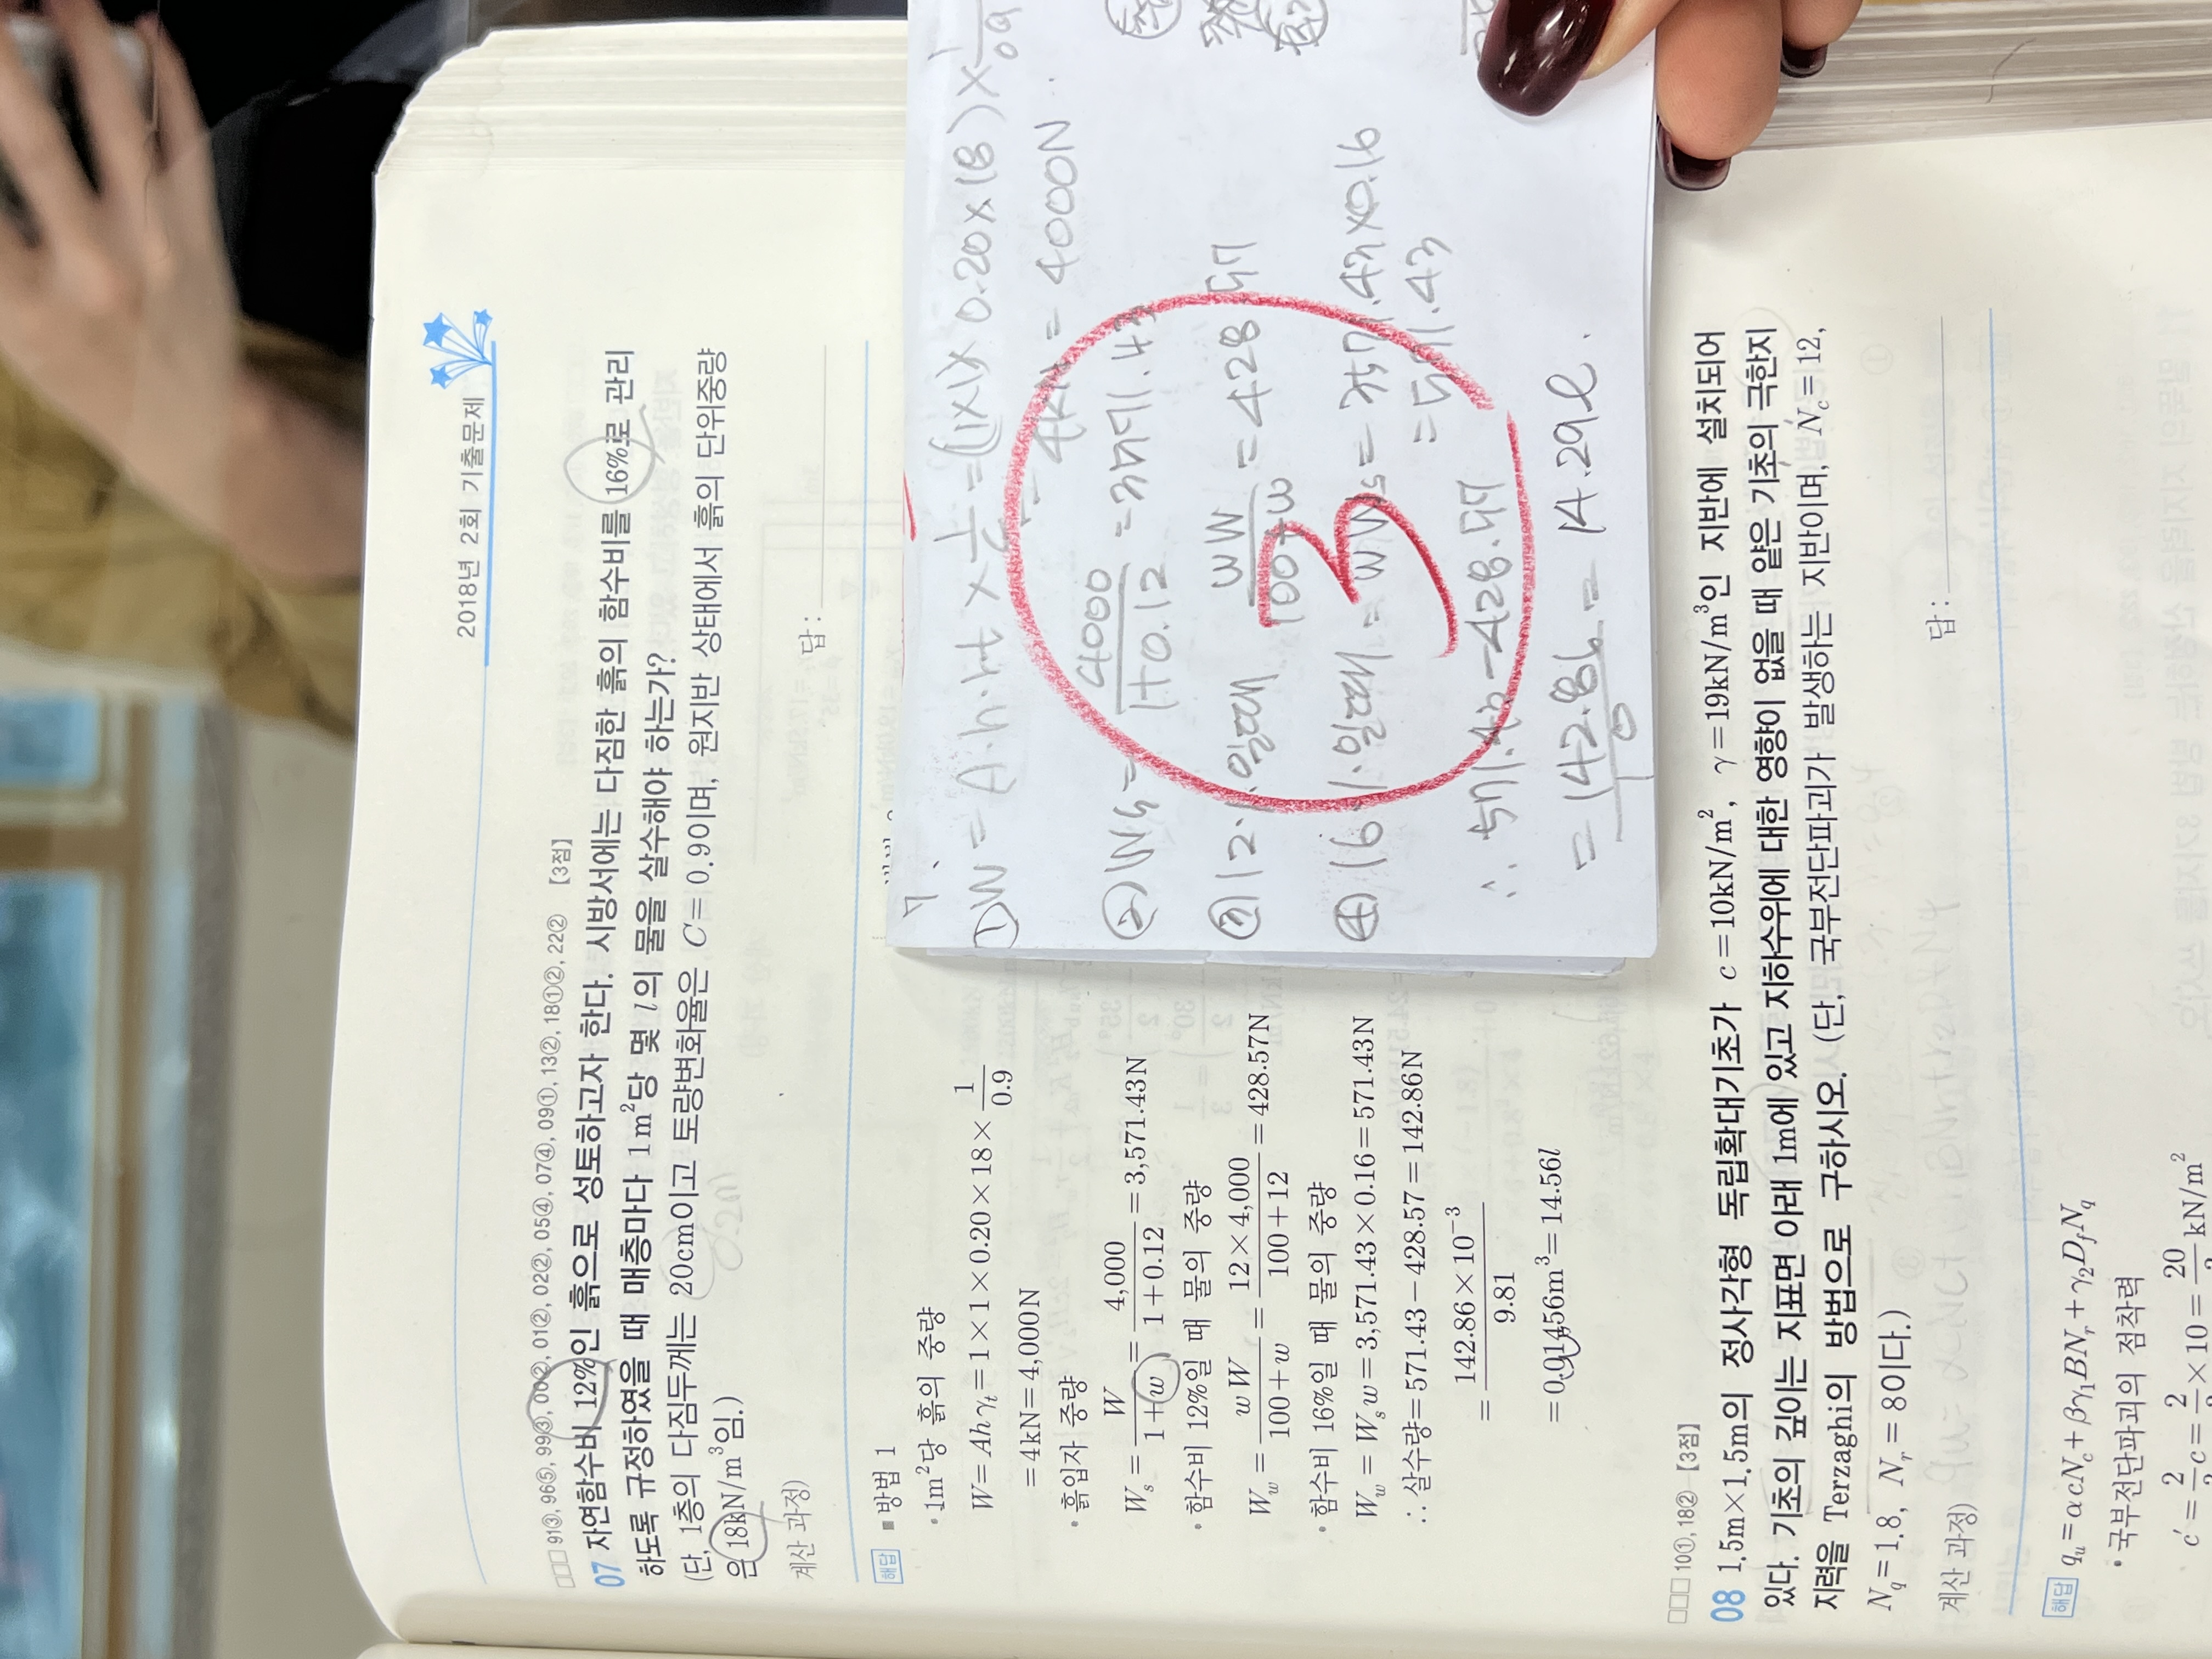 2018년 2회 기출문제
□□□ 91③, 96⑤, 99③, 00②, 01②, 02②, 05④, 07④, 09①, 13②, 18①②, 22② 【3점】
07 자연함수비 12%인 흙으로 성토하고자 한다. 시방서에는 다짐한 흙의 함수비를 16%로 관리
하도록 규정하였을 때 매층마다 1m²당 몇 l의 물을 살수해야 하는가?
(단, 1층의 다짐두께는 20cm이고 토량변화율은 C=0.9이며, 원지반 상태에서 흙의 단위중량
은 18kN/m³임.)
계산 과정)
답:
해답 ■ 방법 1
• 1m²당 흙의 중량
W=Ahγt=1×1×0.20×18×1/0.9
=4kN=4,000N
• 흙입자 중량
Ws=W/(1+w)=4,000/(1+0.12)=3,571.43N
• 함수비 12%일 때 물의 중량
Ww=wW/(100+w)=12×4,000/(100+12)=428.57N
• 함수비 16%일 때 물의 중량
Ww=Ws w=3,571.43×0.16=571.43N
∴ 살수량=571.43−428.57=142.86N
=142.86×10⁻³/9.81
=0.01456m³=14.56l
7.
① W=A·h·rt×1/C=(1×1×0.20×18)×1/0.9
=4kN=4000N
② Ws=4000/(1+0.12)=3571.43
③ 12%일때 wW/(100+w)=428.57
④ 16%일때=wWs=3571.43×0.16
=571.43
∴ 571.43-428.57
=142.86/10=14.29l.
3
□□□ 10①, 18② 【3점】
08 1.5m×1.5m의 정사각형 독립확대기초가 c=10kN/m², γ=19kN/m³인 지반에 설치되어
있다. 기초의 깊이는 지표면 아래 1m에 있고 지하수위에 대한 영향이 없을 때 얕은 기초의 극한지
지력을 Terzaghi의 방법으로 구하시오. (단, 국부전단파괴가 발생하는 지반이며, Nc=12,
Nq=1.8, Nr=8이다.)
계산 과정)
답:
해답 qu=αcNc+βγ₁BNr+γ₂DfNq
• 국부전단파괴의 점착력